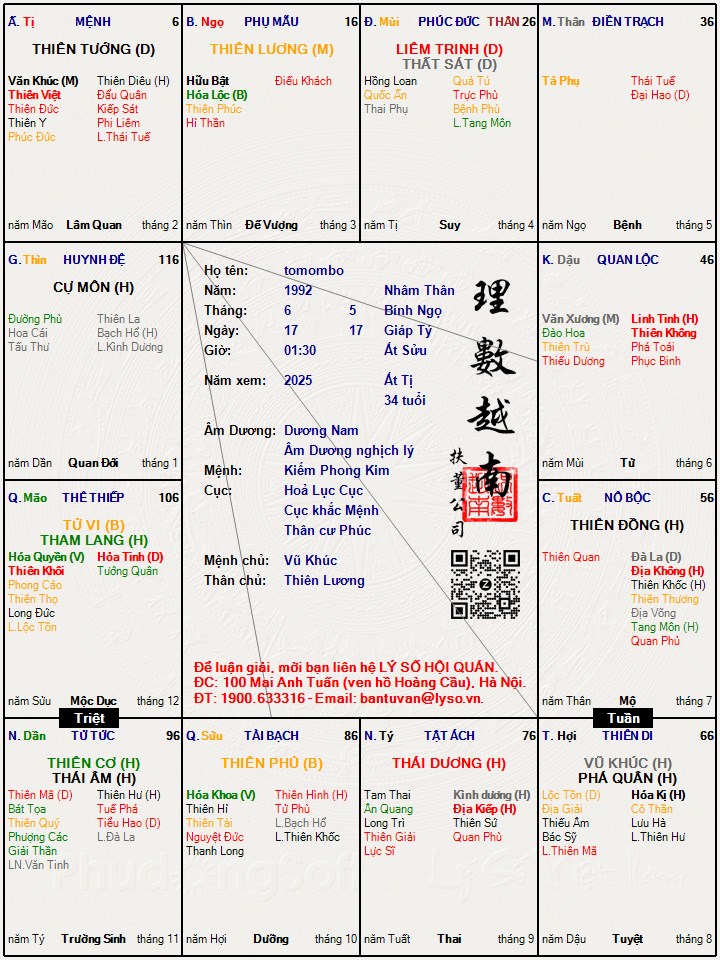 Ã. Tị MỆNH 6
THIÊN TƯỚNG (D)
Văn Khúc (M) Thiên Diêu (H)
Thiên Việt Đẩu Quân
Thiên Đức Kiếp Sát
Thiên Y Phi Liêm
Phúc Đức L.Thái Tuế
năm Mão Lâm Quan tháng 2
B. Ngọ PHỤ MẪU 16
THIÊN LƯƠNG (M)
Hữu Bật Điếu Khách
Hóa Lộc (B)
Thiên Phúc
Hỉ Thần
năm Thìn Đế Vượng tháng 3
Đ. Mùi PHÚC ĐỨC THÂN 26
LIÊM TRINH (D)
THẤT SÁT (D)
Hồng Loan Quả Tú
Quốc Ấn Trực Phù
Thai Phụ Bệnh Phù
L.Tang Môn
năm Tị Suy tháng 4
M. Thân ĐIỀN TRẠCH 36
Tả Phụ Thái Tuế
Đại Hao (D)
năm Ngọ Bệnh tháng 5
G. Thìn HUYNH ĐỆ 116
CỰ MÔN (H)
Đường Phù Thiên La
Hoa Cái Bạch Hổ (H)
Tấu Thư L.Kình Dương
năm Dần Quan Đới tháng 1
Họ tên: tomombo
Năm: 1992 Nhâm Thân
Tháng: 6 5 Bính Ngọ
Ngày: 17 17 Giáp Tý
Giờ: 01:30 Ất Sửu
Năm xem: 2025 Ất Tị
34 tuổi
Âm Dương: Dương Nam
Âm Dương nghịch lý
Mệnh: Kiếm Phong Kim
Cục: Hoả Lục Cục
Cục khắc Mệnh
Thân cư Phúc
Mệnh chủ: Vũ Khúc
Thân chủ: Thiên Lương
理數越南
扶董公司
Để luận giải, mời bạn liên hệ LÝ SỐ HỘI QUÁN.
ĐC: 100 Mai Anh Tuấn (ven hồ Hoàng Cầu), Hà Nội.
ĐT: 1900.633316 - Email: bantuvan@lyso.vn.
K. Dậu QUAN LỘC 46
Văn Xương (M) Linh Tinh (H)
Đào Hoa Thiên Không
Thiên Trù Phá Toái
Thiếu Dương Phục Binh
năm Mùi Tử tháng 6
Q. Mão THÊ THIẾP 106
TỬ VI (B)
THAM LANG (H)
Hóa Quyền (V) Hỏa Tinh (D)
Thiên Khôi Tướng Quân
Phong Cáo
Thiên Thọ
Long Đức
L.Lộc Tồn
năm Sửu Mộc Dục tháng 12
C. Tuất NÔ BỘC 56
THIÊN ĐỒNG (H)
Thiên Quan Đà La (D)
Địa Không (H)
Thiên Khốc (H)
Thiên Thương
Địa Võng
Tang Môn (H)
Quan Phủ
năm Thân Mộ tháng 7
Triệt
Tuần
N. Dần TỬ TỨC 96
THIÊN CƠ (H)
THÁI ÂM (H)
Thiên Mã (D) Thiên Hư (H)
Bát Tọa Tuế Phá
Thiên Quý Tiểu Hao (D)
Phượng Các L.Đà La
Giải Thần
LN.Văn Tinh
năm Tý Trường Sinh tháng 11
Q. Sửu TÀI BẠCH 86
THIÊN PHỦ (B)
Hóa Khoa (V) Thiên Hình (H)
Thiên Hỉ Tử Phù
Thiên Tài L.Bạch Hổ
Nguyệt Đức L.Thiên Khốc
Thanh Long
năm Hợi Dưỡng tháng 10
N. Tý TẬT ÁCH 76
THÁI DƯƠNG (H)
Tam Thai Kình dương (H)
Ân Quang Địa Kiếp (H)
Long Trì Thiên Sứ
Thiên Giải Quan Phù
Lực Sĩ
năm Tuất Thai tháng 9
T. Hợi THIÊN DI 66
VŨ KHÚC (H)
PHÁ QUÂN (H)
Lộc Tồn (D) Hóa Kị (H)
Địa Giải Cô Thần
Thiếu Âm Lưu Hà
Bác Sỹ L.Thiên Hư
L.Thiên Mã
năm Dậu Tuyệt tháng 8